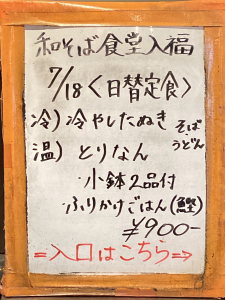 和そば食堂入福
7/18<日替定食>
冷)冷やしたぬき そば
温)とりなん うどん
・小鉢2品付
・ふりかけごはん(鰹)
¥900-
=入口はこちら⇒